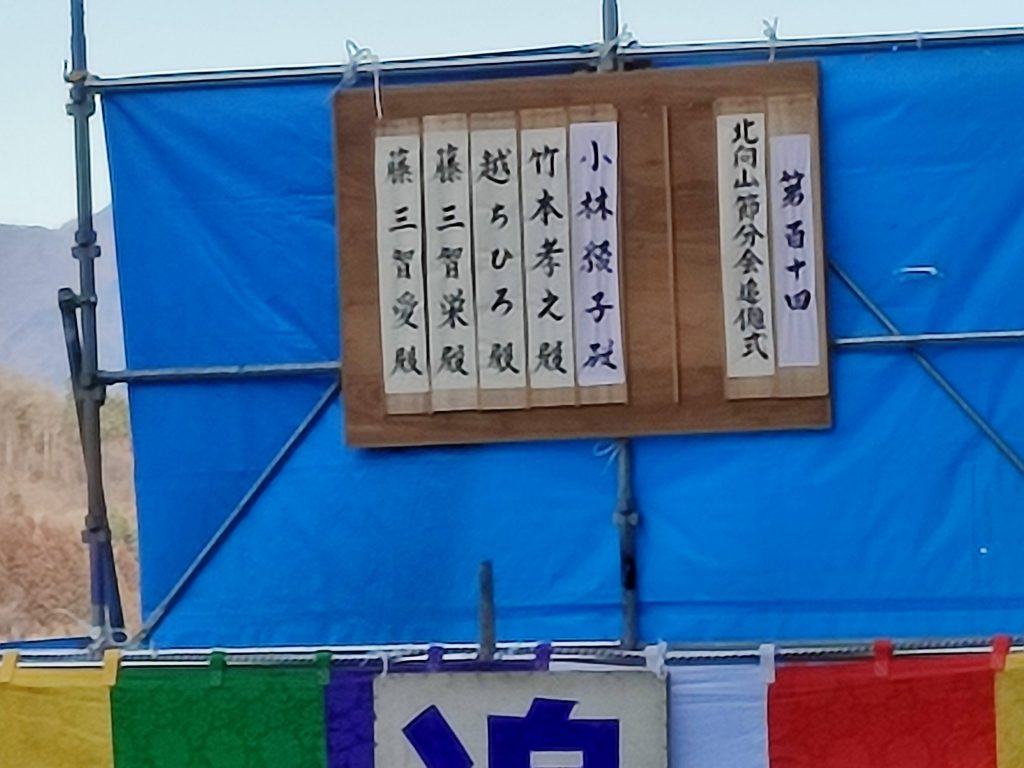 第百十回
北向山節分会追儺式
小林綾子殿
竹本孝之殿
越ちひろ殿
藤三智栄殿
藤三智愛殿
追